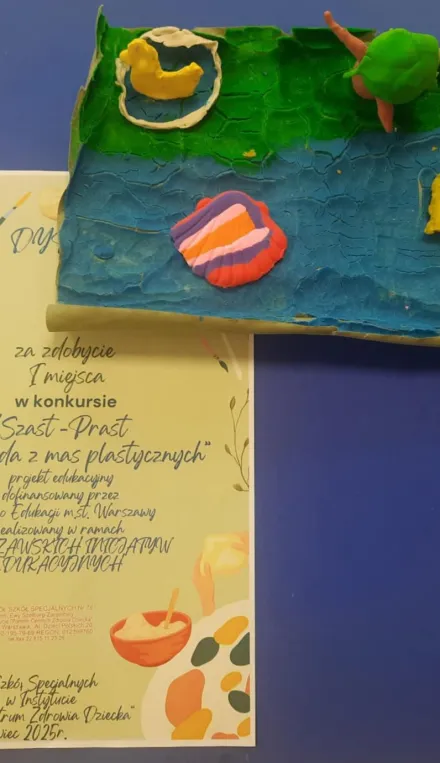 DY
za zdobycie
I miejsca
w konkursie
"Szast-Prast
da z mas plastycznych"
projekt edukacyjny
dofinansowany przez
o Edukacji m.st. Warszawy
ealizowany w ramach
ZAWSKICH INICJATYW
EDUKACYJNYCH
SZKÓŁ SPECJALNYCH Nr
zkół Specjalnych
w Instytucie
trum Zdrowia Dziecka"
wiec 2025r.